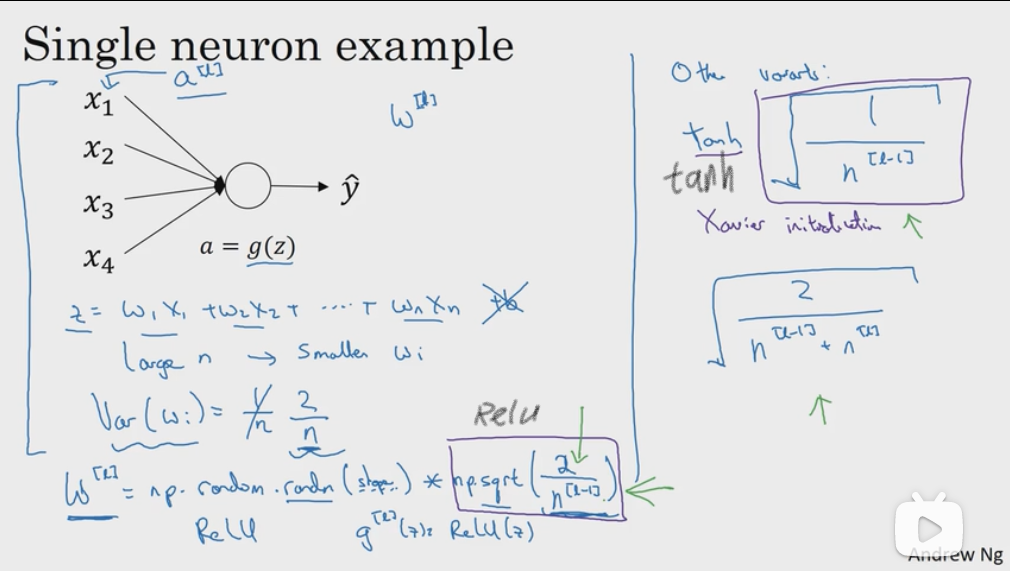 Single neuron example
a^[l]
x₁
x₂
x₃
x₄
w^[l]
ŷ
a = g(z)
z = w₁x₁ + w₂x₂ + ···· + wₙxₙ +b
large n → smaller wᵢ
Var(wᵢ) = 1/n 2/n
Relu
W^[l] = np.random.randn(shape) * np.sqrt(2/n^[l-1])
ReLU g^[l](z) = ReLU(z)
Other variants:
tanh
tanh
√(1/n^[l-1])
Xavier initialization
√(2/(n^[l-1] + n^[l]))
Andrew Ng